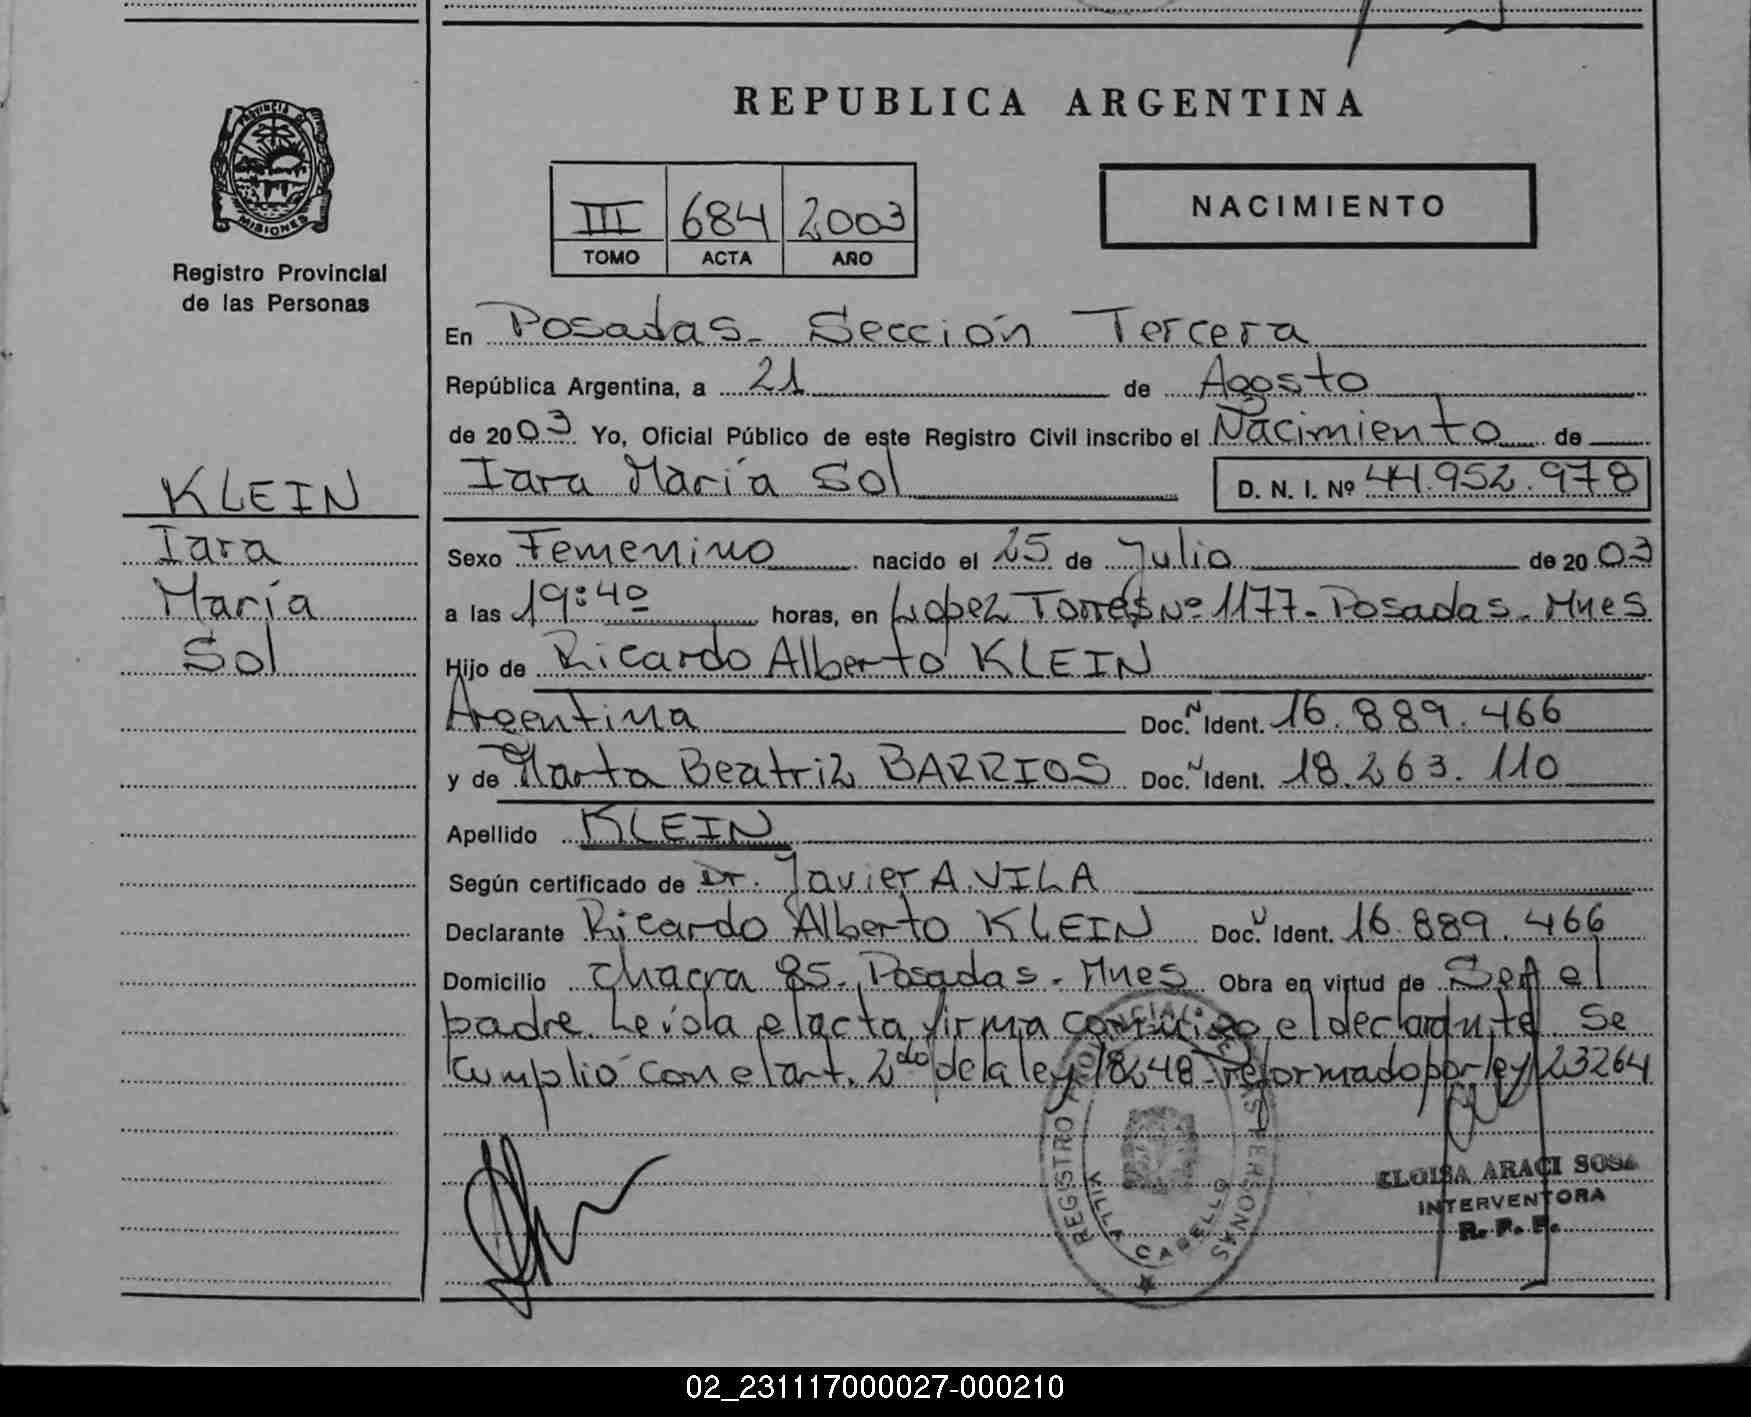 REPUBLICA ARGENTINA
PROVINCIA DE
MISIONES
Registro Provincial
de las Personas
III 684 2003
TOMO ACTA AÑO
NACIMIENTO
En Posadas - Sección Tercera
República Argentina, a 21 de Agosto
de 2003 Yo, Oficial Público de este Registro Civil inscribo el Nacimiento de
Iara María Sol D. N. I. Nº 44.952.978
KLEIN
Iara
María
Sol
Sexo Femenino nacido el 25 de Julio de 2003
a las 19:40 horas, en Lopez Torres Nº 1177 - Posadas - Mnes
Hijo de Ricardo Alberto KLEIN
Argentina Doc. N Ident. 16.889.466
y de Marta Beatriz BARRIOS Doc. N Ident. 18.263.110
Apellido KLEIN
Según certificado de Dr. Javier AVILA
Declarante Ricardo Alberto KLEIN Doc. N Ident. 16.889.466
Domicilio Chacra 85. Posadas - Mnes Obra en virtud de Ser el
padre. Leída el acta, firma conmigo el declarante. Se
cumplió con el art. 2do de la ley 18248 - reformado por ley 23264
REGISTRO PROVINCIAL DE LAS PERSONAS
VILLA CABELLO
ELOISA ARACI SOSA
INTERVENTORA
R. P. P.
02_231117000027-000210